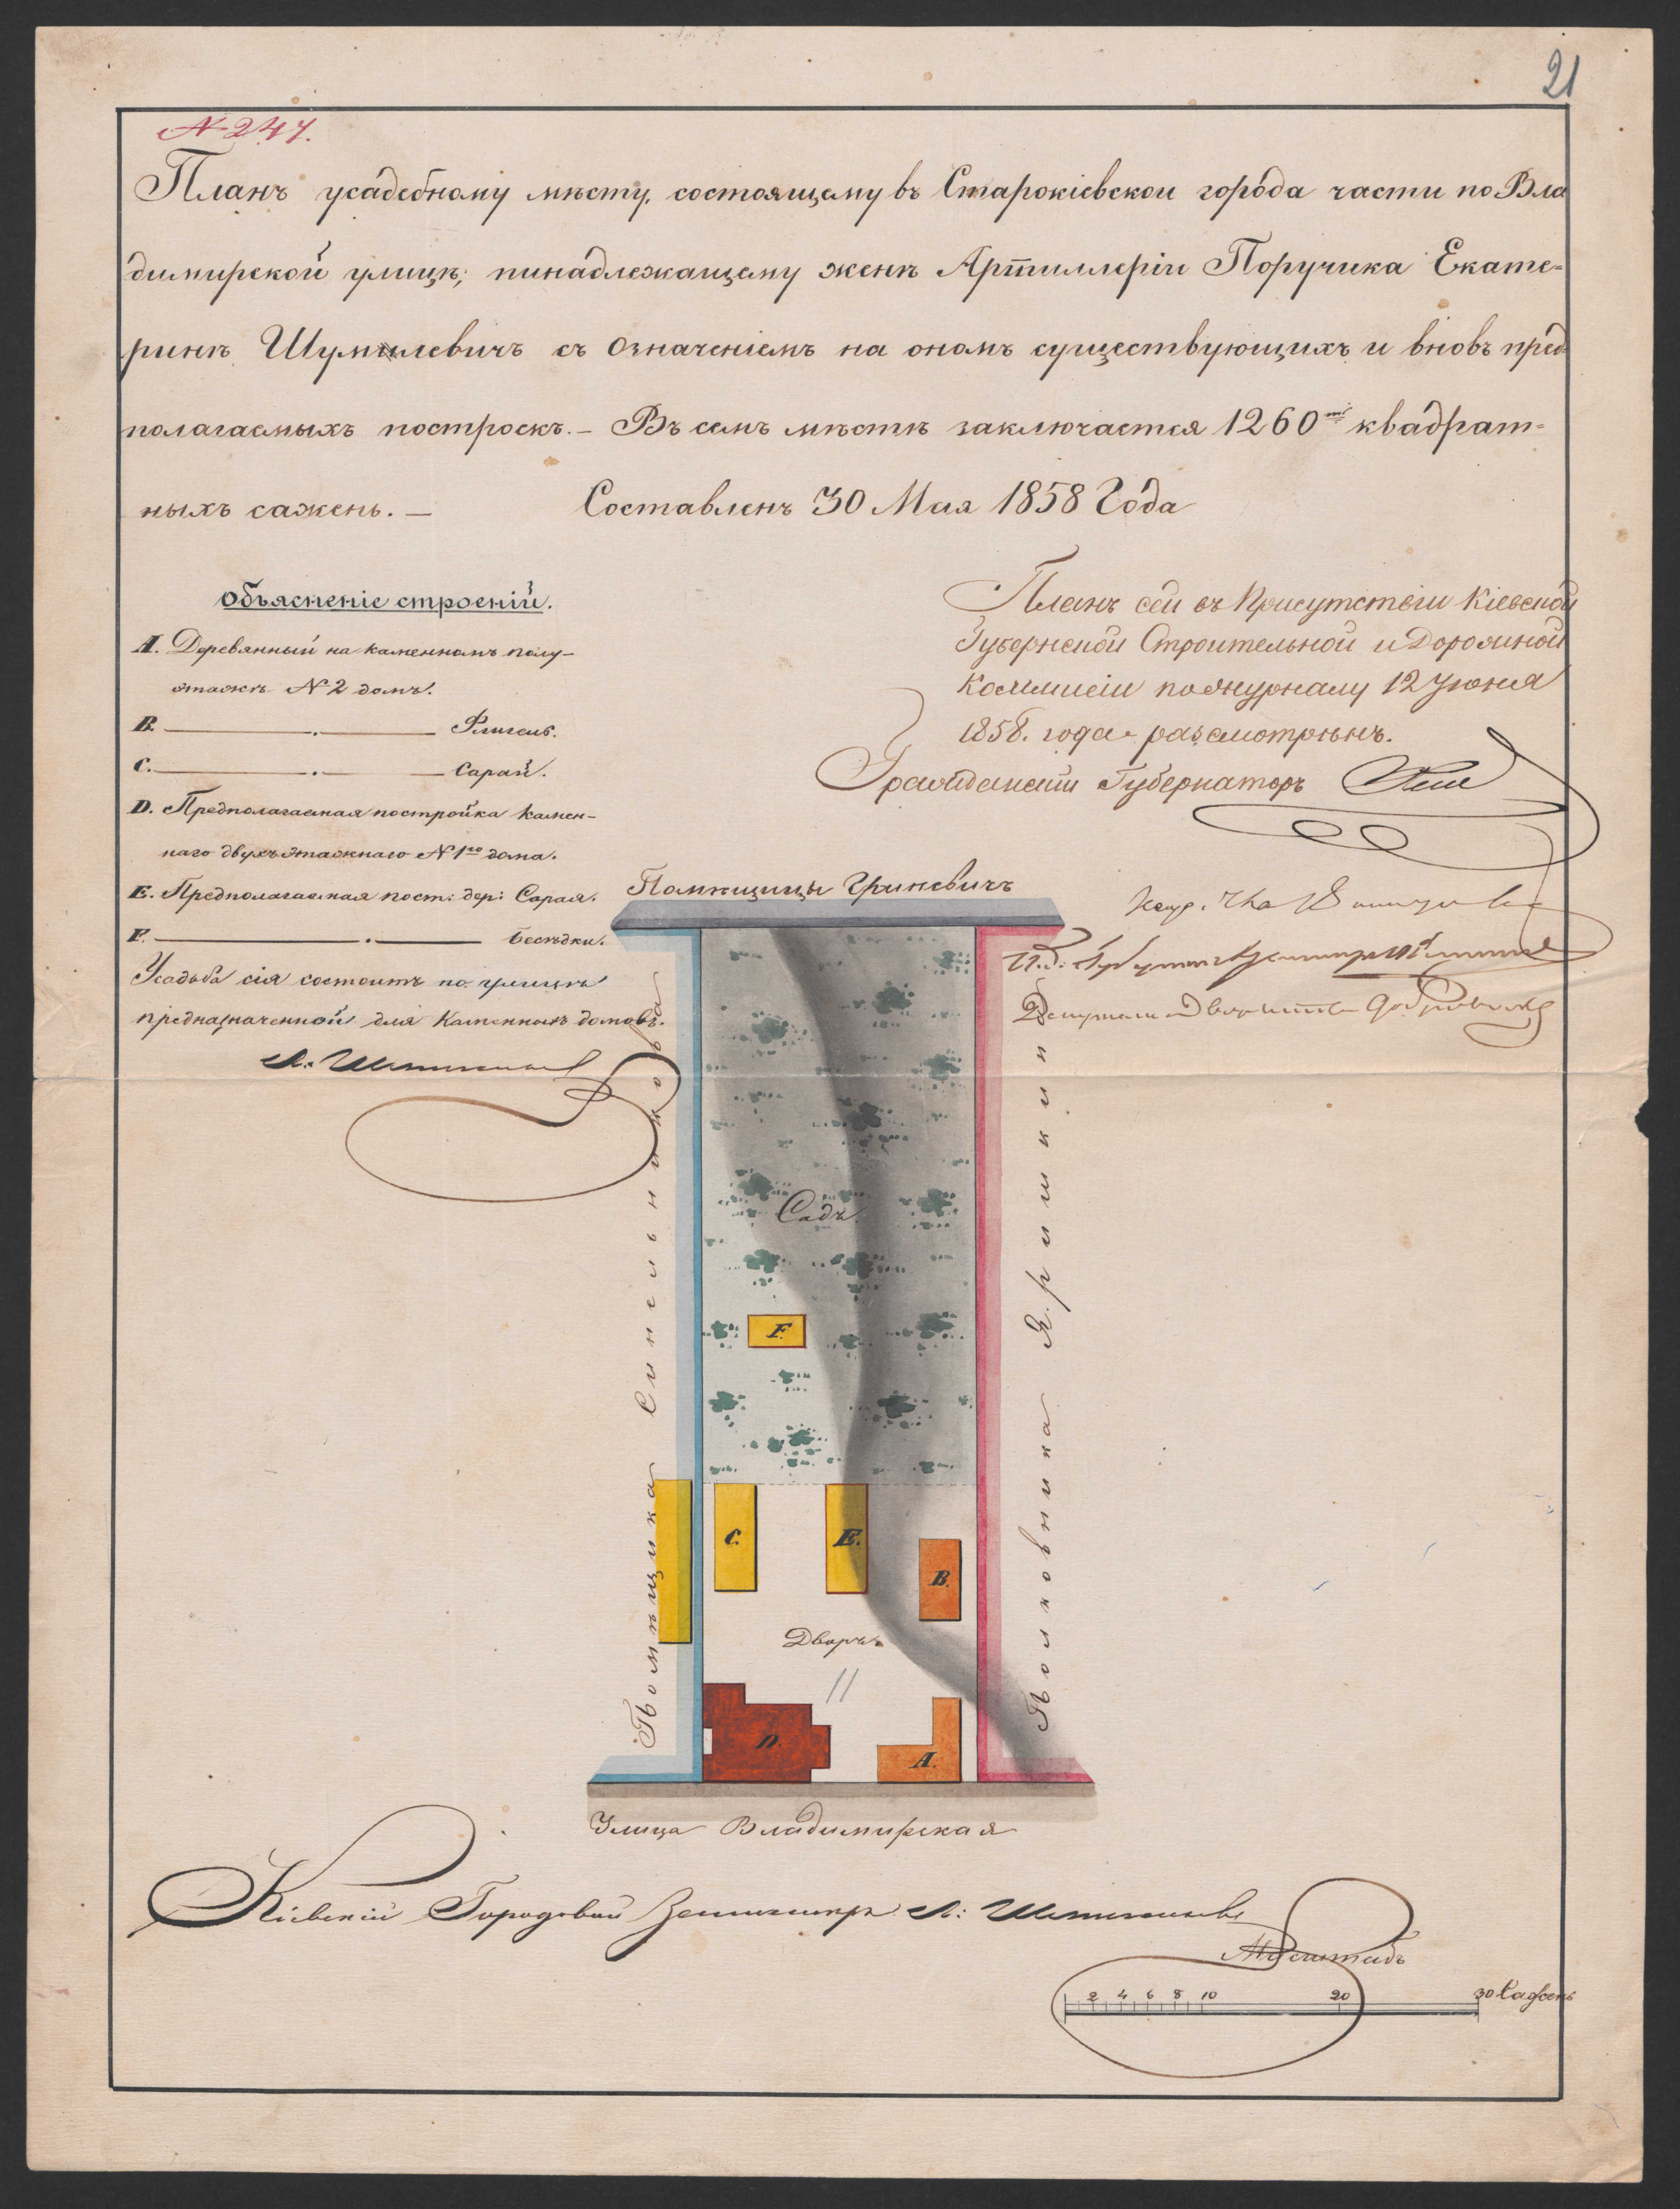 21
N 247.
Планъ усадебному мѣсту, состоящему въ Старокіевской города части по Вла
димирской улицѣ; пинадлежащему женѣ Артиллеріи Поручика Екате=
ринѣ Шумилевичъ съ означеніемъ на ономъ существующихъ и вновъ пред=
полагаемыхъ построекъ. – Въ семъ мѣстѣ заключается 1260ть квадрат=
ныхъ сажень. – Составленъ 30 Мая 1858 Года
Объясненіе строеній.
A. Деревянный на каменномъ полу–
этажѣ N 2 домъ.
B. ——·—— Флигель.
C. ——·—— Сарай.
D. Предполагаемая постройка камен–
наго двухъэтажнаго N 1го дома.
E. Предполагаемая пост: дер: Сарая.
F. ——·—— Бесѣдки.
Усадьба сія состоитъ по улицѣ
предназначенной для Каменныхъ домовъ.
Планъ сей въ Присутствіи Кіевской
Губернской Строительной и Дорожной
Коммисіи по журналу 12 Іюня
1858. года разсмотрѣнъ.
Гражданскій Губернаторъ
Помѣщицы Гриневичъ
Помѣщика Синельникова
Полковника
Садъ
F.
C.
E.
B.
Дворъ
11
D.
A.
Улица Владимирская
Кіевскій Городовой Землемѣръ
Масштабъ
2 4 6 8 10 20 30 Сажень